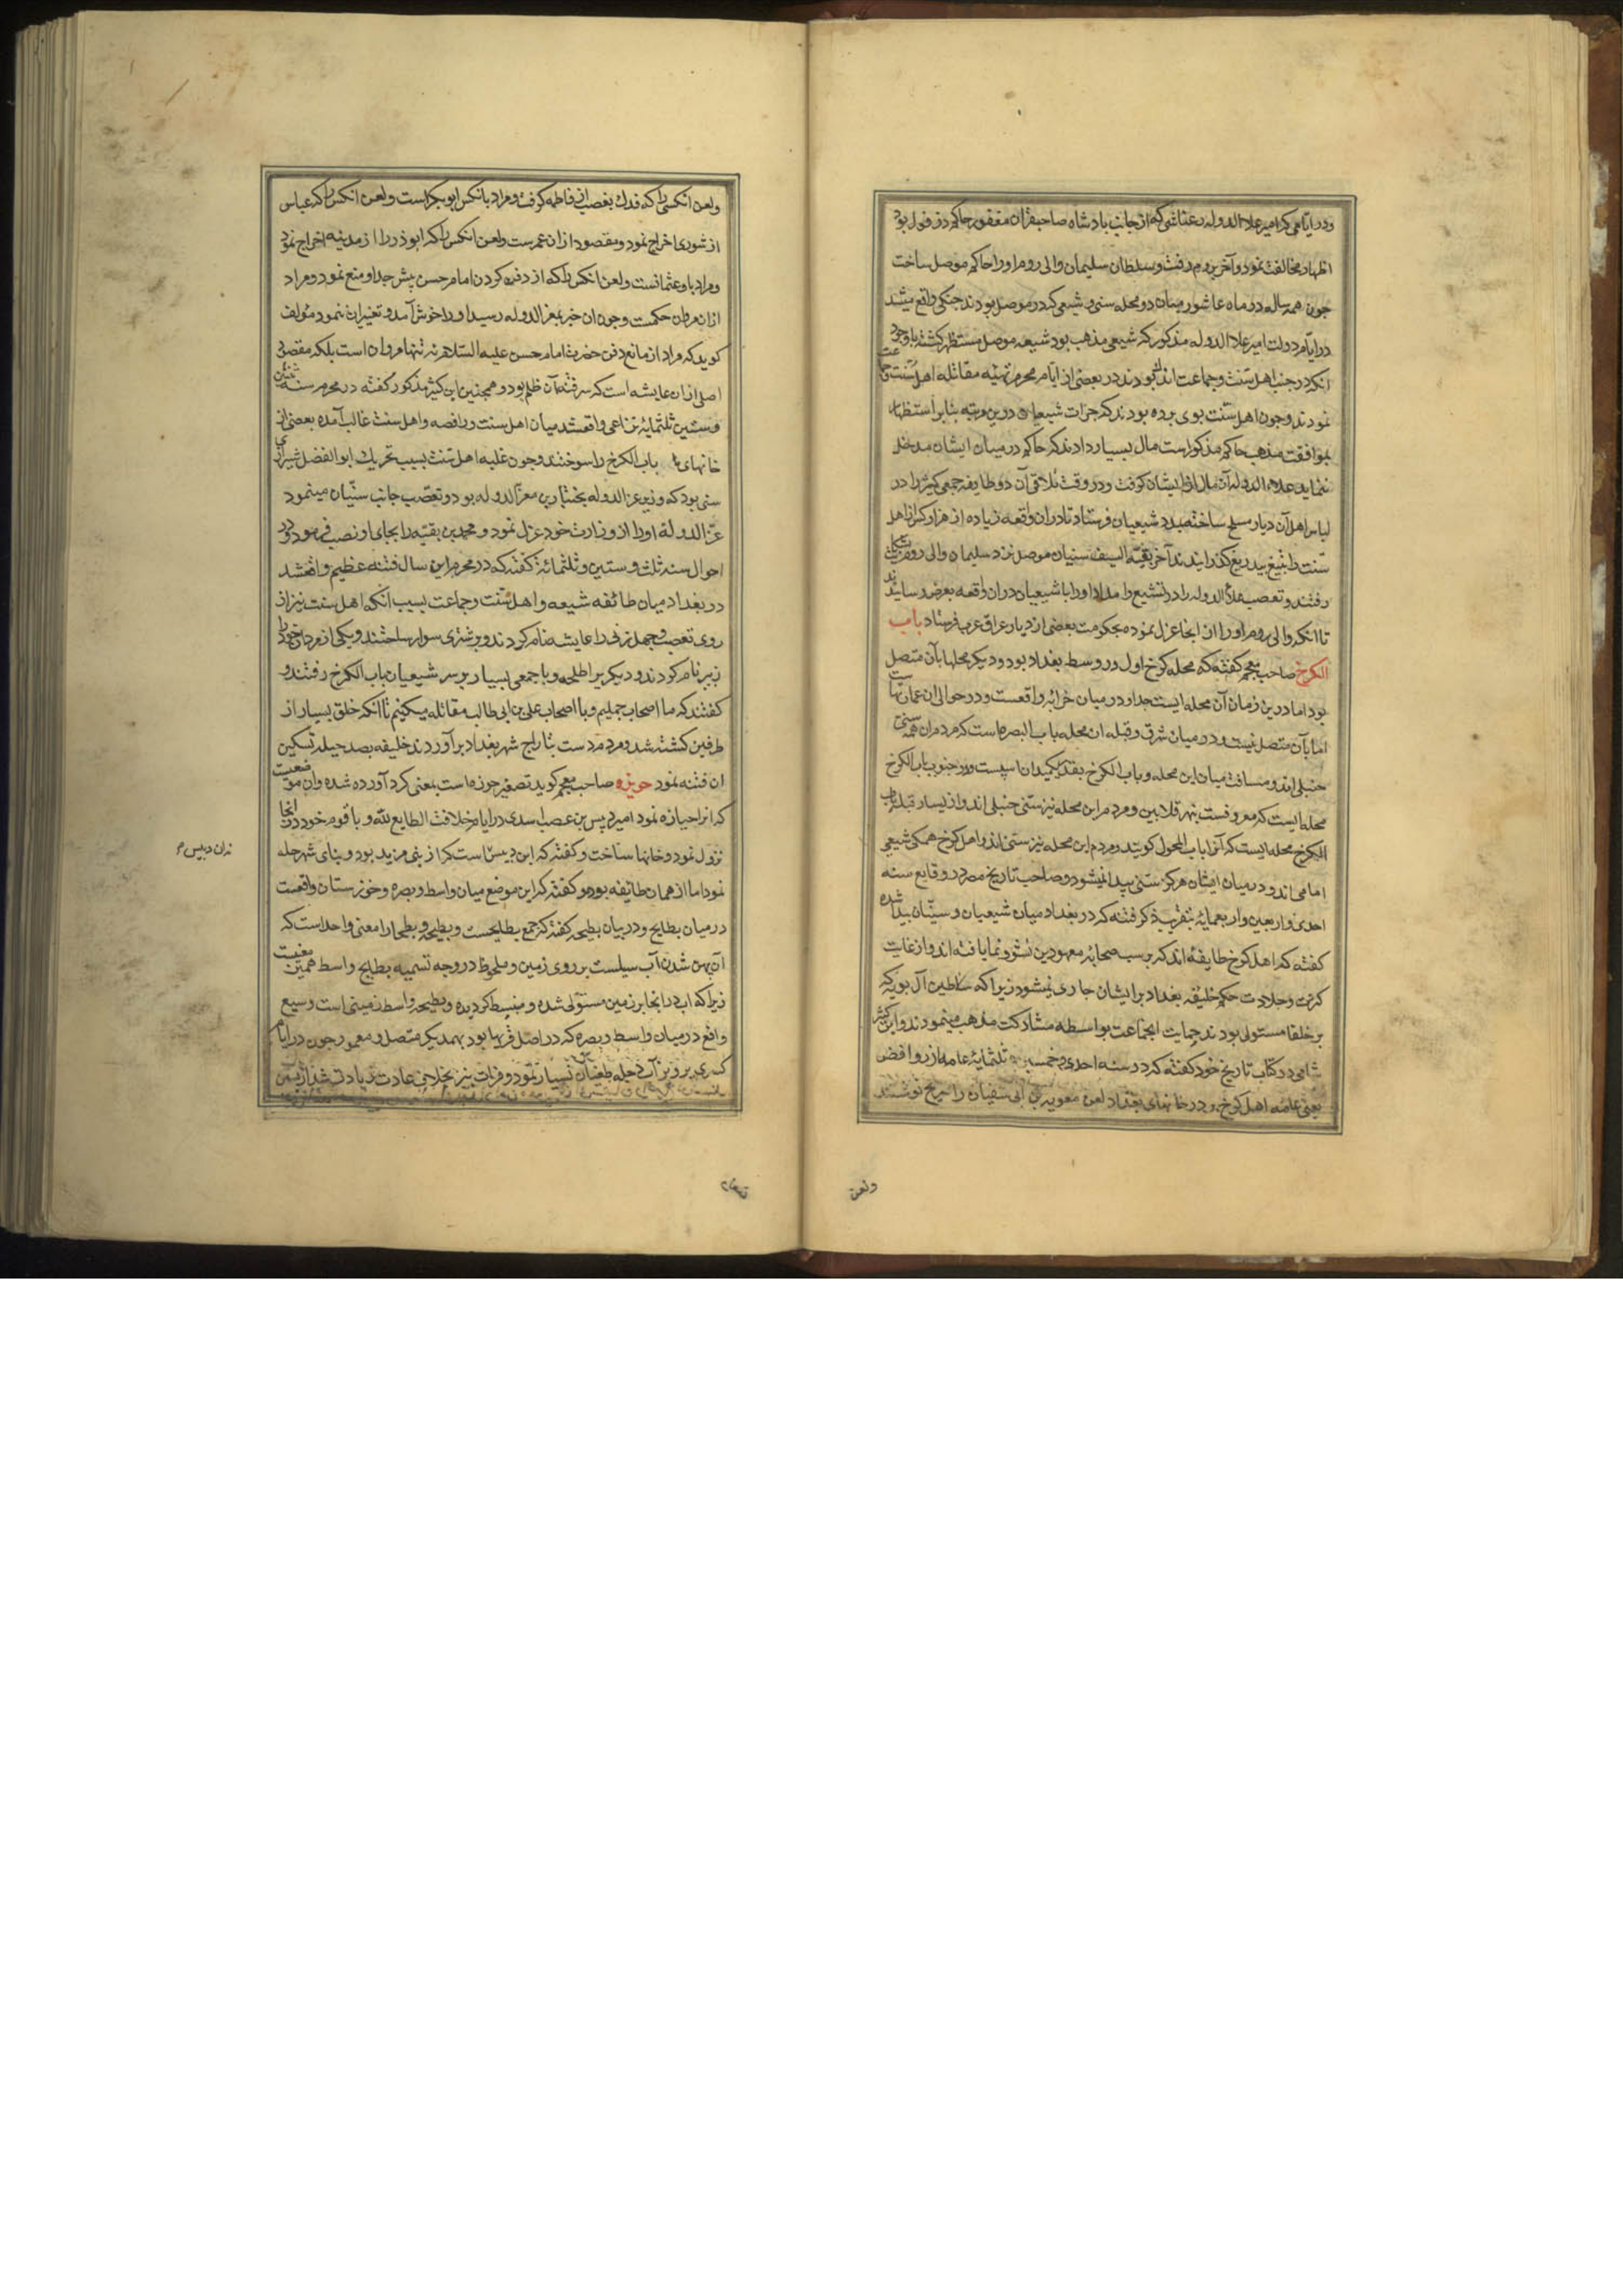 ودر ایامی که امیر علاء الدوله رعناشی که از جانب پادشاه صاحبقران مغفور حاکم دزفول بود
اظهار مخالفت نمود و آخر بروم رفت و سلطان سلیمان والی روم او را حاکم موصل ساخت
چون همه ساله در ماه عاشور میان دو محله سنی و شیعی که در موصل بودند جنکی واقع میشد
در ایام دولت امیر علاء الدوله مذکور که شیعی مذهب بود شیعه موصل مستظهر کشته باوجود
انکه در جنب اهل سنت و جماعت اندک بودند در بعضی از ایام محرم تهیه مقاتله اهل سنت و جماعت
نمودند و چون اهل سنت بوی برده بودند که جرات شیعیان درین مرتبه بنابر استظهار
بموافقت مذهب حاکم مذکور است مال بسیار دادند که حاکم در میان ایشان مدخل
ننماید علاء الدوله آن مال از ایشان کرفت و در وقت تلاقی آن دو طایفه جمعی کثیر را در
لباس اهل آن دیار مسلح ساخته بمدد شیعیان فرستاد تا در ان واقعه زیاده از هزار کس از اهل
سنت را بتیغ بیدریغ کذرانیدند آخر بقیة السیف سنیان موصل نزد سلیمان والی روم بشکایت
رفتند و تعصب علاء الدوله را در تشیع و امداد او را با شیعیان در ان واقعه بعرض رسانیدند
تا انکه والی روم او را از انجا عزل نموده بحکومت بعضی از دیار عراق عرب فرستاد باب
الکرخ صاحب معجم کفته که محله کرخ اول در وسط بغداد بود و دیکر محلها بآن متصل
بود اما درین زمان آن محله ایست جدا و در میان خرابه واقعست و در حوالی ان عمارتهاست
اما بآن متصل نیست و در میان شرق و قبله ان محله باب البصره است که مردم ان همه سنی
حنبلی اند و مسافت میان این محله و باب الکرخ بقدر یکمیدان اسپست و در جنوب باب الکرخ
محله ایست که معروفست بنهر قلابین و مردم این محله نیز سنی حنبلی اند و از یسار قبله باب
الکرخ محله ایست که آنرا باب المحول کویند و مردم این محله نیز سنی اند و اهل کرخ همکی شیعی
امامی اند و در میان ایشان هرکز سنی پیدا نمیشود و صاحب تاریخ مصر در وقایع سنه
احدی و اربعین و اربعمایه بتقریب ذکر فتنه که در بغداد میان شیعیان و سنیان پیدا شده
کفته که اهل کرخ طایفه اند که بر سب صحابه معهودین نشو و نما یافته اند و از غایت
کثرت و جلادت حکم خلیفه بغداد بر ایشان جاری نمیشود زیرا که سلاطین آل بویه که
بر خلفا مستولی بودند حمایت انجماعت بواسطه مشارکت مذهب مینمودند و ابن کثیر
شامی در کتاب تاریخ خود کفته که در سنه احدی و خمسین و ثلثمایه عامه از روافض
یعنی عامه اهل کرخ و در خانهای بغداد لعن معویه بن ابی سفیان را صریح نوشتند
ولعن
ولعن انکسی را که فدک بغصب از فاطمه کرفت و مراد بانکس ابوبکر است و لعن انکس را که عباس
از شوری اخراج نمود و مقصود از ان عمرست و لعن انکس را که ابوذر را از مدینه اخراج نمود
و مراد باو عثمانست و لعن انکس را که از دفن کردن امام حسن پیش جد او منع نمود و مراد
از ان مروان حکمست و چون ان خبر بمعز الدوله رسید او را خوش آمد و تغییر ان ننمود مؤلف
کوید که مراد از مانع دفن حضرت امام حسن علیه السلام نه تنها مروان است بلکه مقصود
اصلی از ان عایشه است که سر فتنه آن ظلم بود و همچنین ابن کثیر مذکور کفته در محرم سنه اثنین
و ستین و ثلثمایه نزاعی واقعشد میان اهل سنت و رافضه و اهل سنت غالب آمده بعضی از
خانهای باب الکرخ را سوختند و چون غلبه اهل سنت بسبب تحریک ابوالفضل شیرازی
سنی بود که وزیر عز الدوله بختیار بن معز الدوله بود و تعصب جانب سنیان مینمود
عز الدوله او را از وزارت خود عزل نمود و محمد بن بقیه را بجای او نصب فرمود و در
احوال سنه ثلث و ستین و ثلثمائه کفته که در محرم این سال فتنه عظیم واقعشد
در بغداد میان طائفه شیعه و اهل سنت و جماعت بسبب آنکه اهل سنت نیز از
روی تعصب و جهل زنی را عایشه نام کردند و بر شتری سوار ساختند و یکی از مردان خود را
زبیر نام کردند و دیکری را طلحه و با جمعی بسیار بر سر شیعیان باب الکرخ رفتند و
کفتند که ما اصحاب جملیم و با اصحاب علی بن ابی طالب مقاتله میکنیم تا انکه خلق بسیار از
طرفین کشته شد و مردم دست بتاراج شهر بغداد برآوردند خلیفه بصد حیله تسکین
ان فتنه نمود حویزه صاحب معجم کوید تصغیر حوزه است بمعنی کرد آورده شده و ان موضعیست
که انرا حیازه نمود امیر دبیس بن عصب اسدی در ایام خلافت الطایع لله و با قوم خود در انجا
نزول نمود و خانها ساخت و کفته که این دبیس است که از بنی مزید بود و بنای شهر حله
نمود اما از همان طائفه بود و کفته که این موضع میان واسط و بصره و خوزستان واقعست
در میان بطایح و در بیان بطیحه کفته که جمع بطایحست و بطیحه و بطحا را معنی واحد است که
آن پهن شدن آب سیلست بر روی زمین و ملحوظ در وجه تسمیه بطایح واسط همین معنیست
زیرا که اب در انجا بر زمین مستولی شده و منبسط کردیده و بطیحه واسط زمینی است وسیع
واقع در میان واسط و بصره که در اصل قریها بود بهمدیکر متصل و معمور چون در ایام
کسری پرویز آب دجله طغیان بسیار نمود و فرات نیز بخلاف عادت زیادتی شد از بستن